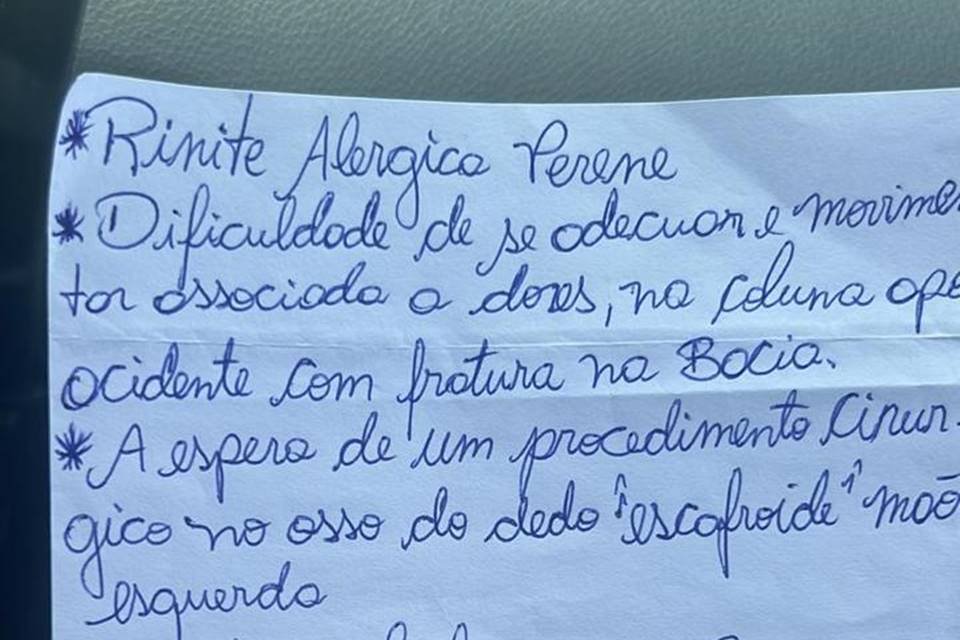 * Rinite Alergica Perene
* Dificuldade de se adecuar e movime
tar associada a dores, na coluna apo
acidente com fratura na Bacia.
* A espera de um procedimento Cirur.
gico no osso do dedo "escafroide" maõ
esquerda